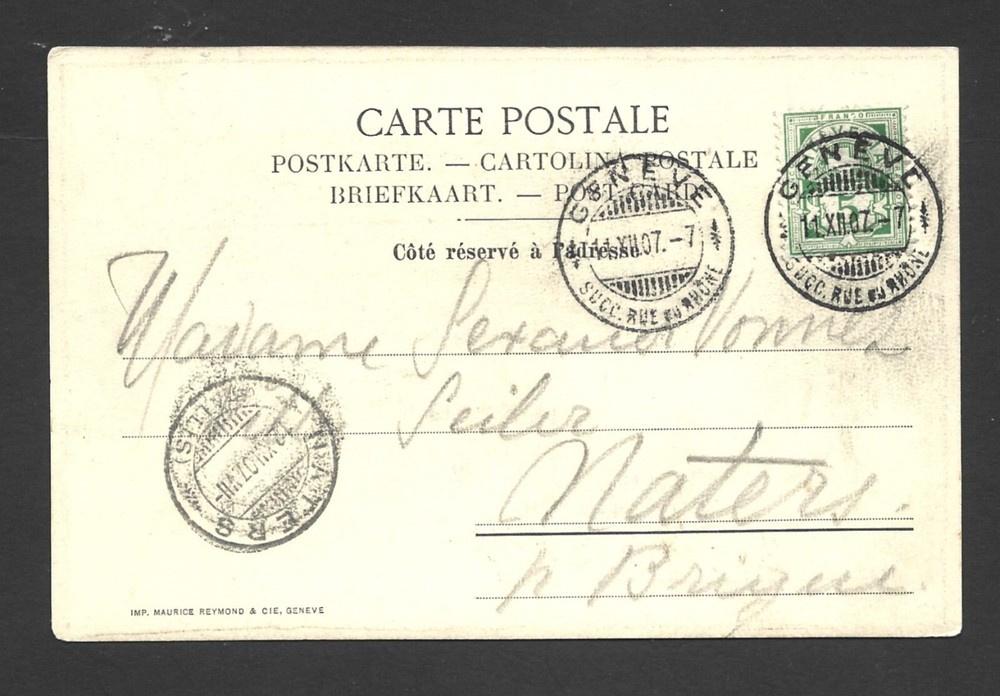 CARTE POSTALE
POSTKARTE. — CARTOLINA POSTALE
BRIEFKAART. — POST CARD
Côté réservé à l'adresse.
FRANCO
5
GENÈVE
11.XII.07.-7
SUCC. RUE DU RHÔNE
GENÈVE
11.XII.07.-7
SUCC. RUE DU RHÔNE
Madame
Seiler
Naters.
p. Brigue.
NATERS
IMP. MAURICE REYMOND & CIE, GENEVE